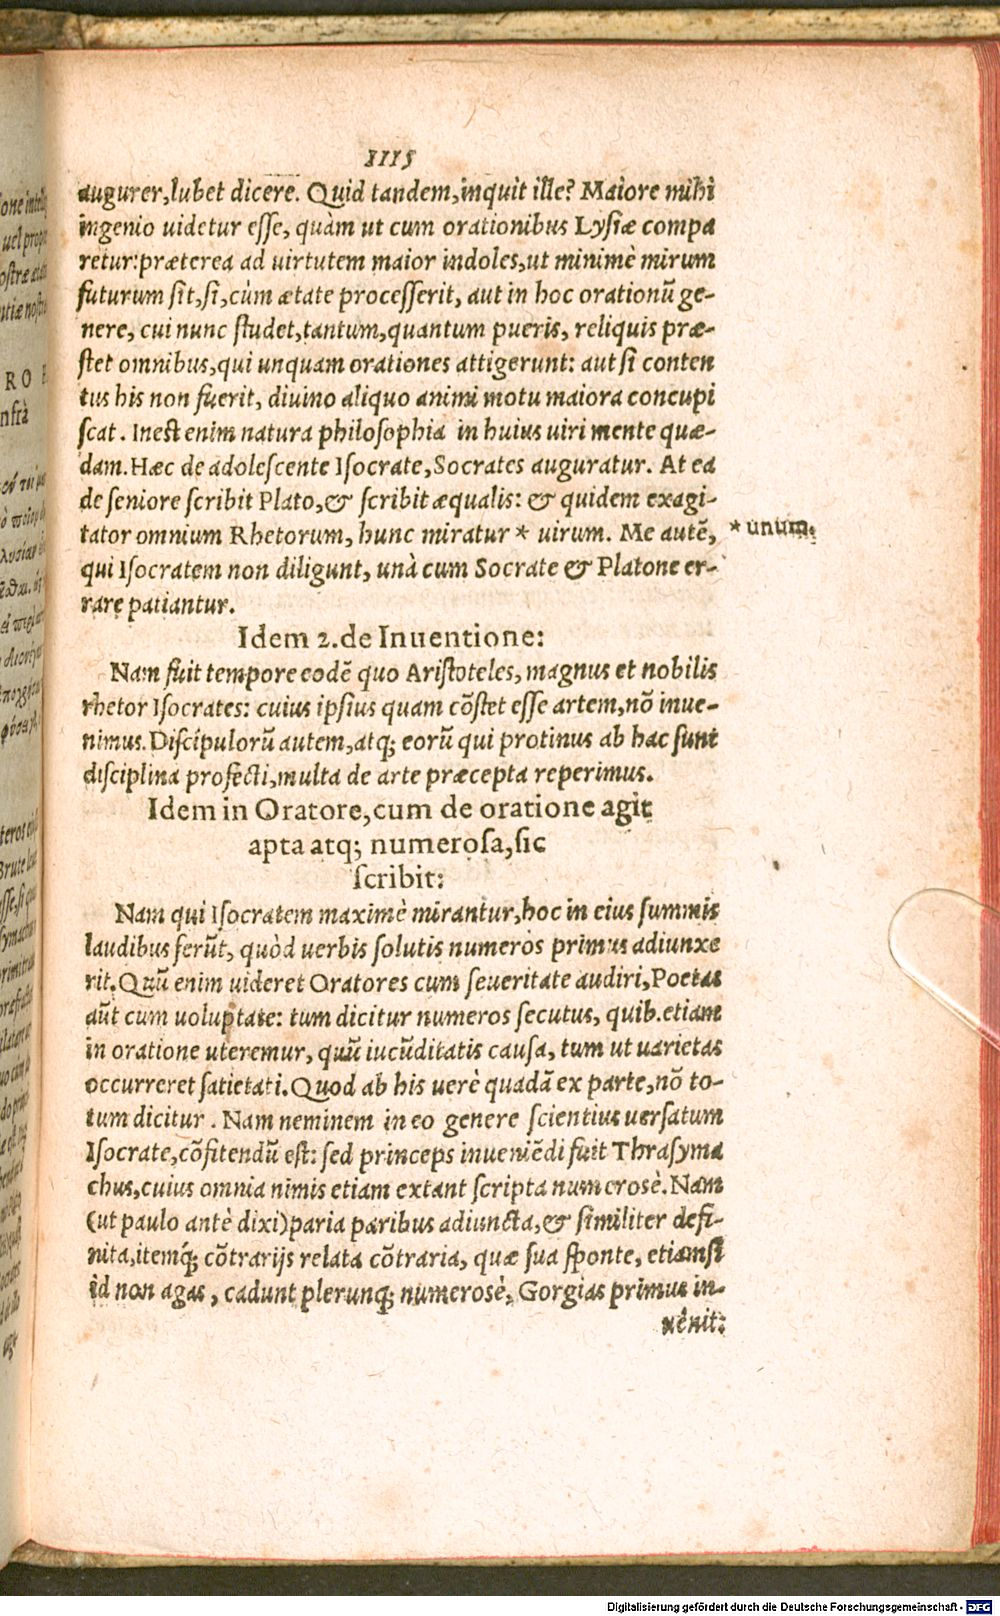 1115
augurer, lubet dicere. Quid tandem, inquit ille? Maiore mihi
ingenio uidetur esse, quàm ut cum orationibus Lysiæ compa
retur: præterea ad uirtutem maior indoles, ut minimè mirum
futurum sit, si, cùm ætate processerit, aut in hoc orationũ ge-
nere, cui nunc studet, tantum, quantum pueris, reliquis præ-
stet omnibus, qui unquam orationes attigerunt: aut si conten
tus his non fuerit, diuino aliquo animi motu maiora concupi
scat. Inest enim natura philosophia in huius uiri mente quæ-
dam. Hæc de adolescente Isocrate, Socrates auguratur. At ea
de seniore scribit Plato, & scribit æqualis: & quidem exagi-
tator omnium Rhetorum, hunc miratur * uirum. Me autẽ,
* unum.
qui Isocratem non diligunt, unà cum Socrate & Platone er-
rare patiantur.
Idem 2. de Inuentione:
Nam fuit tempore eodẽ quo Aristoteles, magnus et nobilis
rhetor Isocrates: cuius ipsius quam cõstet esse artem, nõ inue-
nimus. Discipulorũ autem, atq; eorũ qui protinus ab hac sunt
disciplina profecti, multa de arte præcepta reperimus.
Idem in Oratore, cum de oratione agit
apta atq; numerosa, sic
scribit:
Nam qui Isocratem maximè mirantur, hoc in eius summis
laudibus ferũt, quòd uerbis solutis numeros primus adiunxe
rit. Quũ enim uideret Oratores cum seueritate audiri, Poetas
aũt cum uoluptate: tum dicitur numeros secutus, quib. etiam
in oratione uteremur, quũ iucũditatis causa, tum ut uarietas
occurreret satietati. Quod ab his uerè quadã ex parte, nõ to-
tum dicitur. Nam neminem in eo genere scientius uersatum
Isocrate, cõfitendũ est: sed princeps inueniẽdi fuit Thrasyma
chus, cuius omnia nimis etiam extant scripta numerosè. Nam
(ut paulo antè dixi) paria paribus adiuncta, & similiter defi-
nita, itemq; cõtrarijs relata cõtraria, quæ sua sponte, etiamsi
id non agas, cadunt plerunq; numerosè, Gorgias primus in-
uenit:
Digitalisierung gefördert durch die Deutsche Forschungsgemeinschaft - DFG